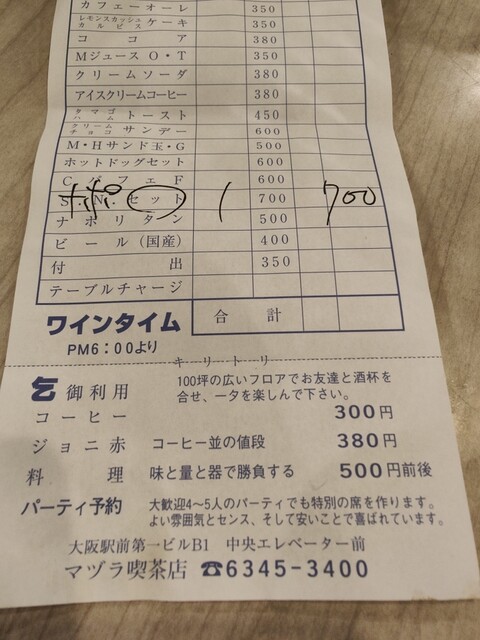 カフェーオーレ 350
レモンスカッシュ カルピス ケーキ 350
ココア 380
Mジュース O・T 350
クリームソーダ 380
アイスクリームコーヒー 380
タマゴ ハム トースト 450
クリーム チョコ サンデー 600
M・Hサンド玉・G 500
ホットドッグセット 600
Cパフェ F 600
セット 1 700 700
ナポリタン 500
ビール(国産) 400
付出 350
テーブルチャージ
ワインタイム 合計
PM6:00より
キリトリ
乞御利用 100坪の広いフロアでお友達と酒杯を
合せ、一夕を楽しんで下さい。
コーヒー 300円
ジョニ赤 コーヒー並の値段 380円
料理 味と量と器で勝負する 500円前後
パーティ予約 大歓迎4~5人のパーティでも特別の席を作ります。
よい雰囲気とセンス、そして安いことで喜ばれています。
大阪駅前第一ビルB1 中央エレベーター前
マヅラ喫茶店 ☎6345-3400